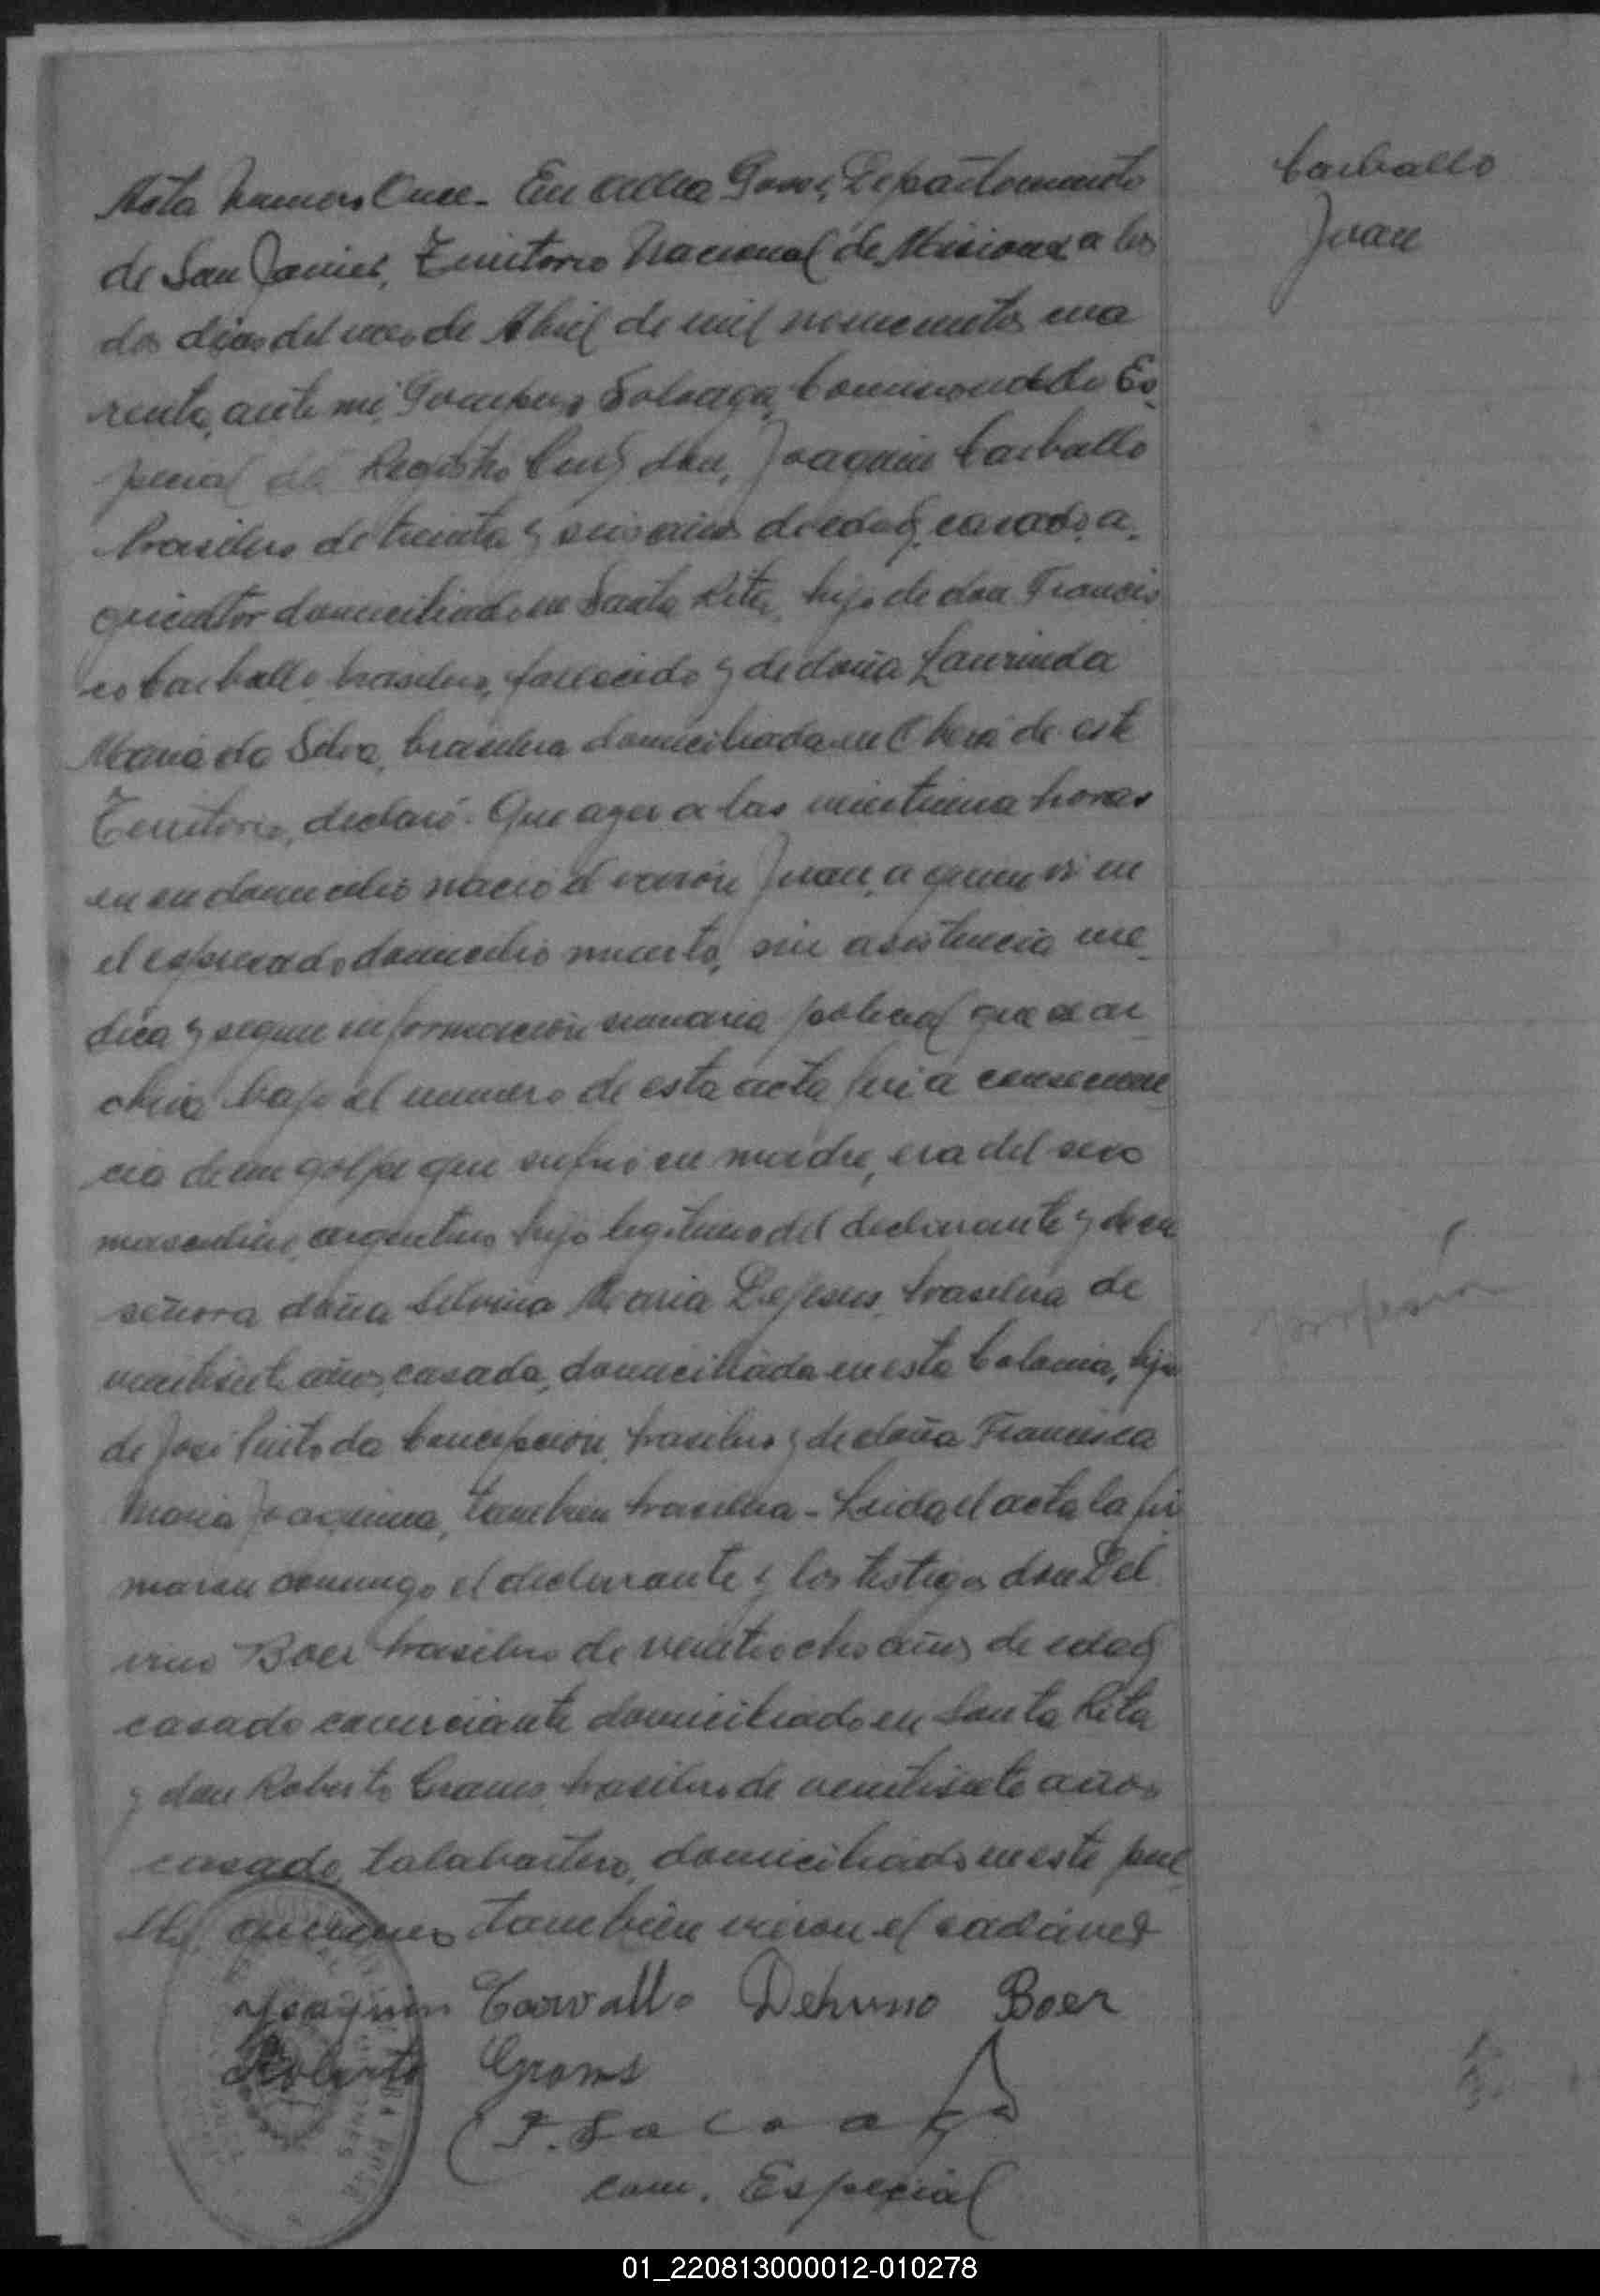 Acta Numero Once - En Departamento
de San Javier, Territorio Nacional de Misiones a los
dos dias del mes de Abril de mil novecientos cua
renta, ante mi, Comisionado Es
pecial del Registro Civil don, Joaquin Carballo
brasilero de treinta y seis años de edad, casado, a
gricultor domiciliado en Santa Rita, hijo de don Francis
co Carballo brasilero, fallecido y de doña Laurinda
Maria da Silva, brasilera domiciliada en Oberá de este
Territorio, declaró: Que ayer a las horas
en su domicilio nació el varón Juan, a quien vi en
el expresado domicilio muerto, sin asistencia mé
dica y segun informacion sumaria policial que se ar
chiva bajo el numero de esta acta fué a consecuen
cia de un golpe que sufrió su madre, era del sexo
masculino, argentino hijo legitimo del declarante y de su
señora doña Silvina Maria Dejesus, brasilera de
veintisiete años, casada, domiciliada en esta Colonia, hija
de José da Concepcion, brasilero y de doña Francisca
Maria Joaquina, tambien brasilera - Leida el acta la fir
maron conmigo el declarante y los testigos don Del
vino Boer brasilero de veintiocho años de edad
casado comerciante domiciliado en Santa Rita
y don Roberto Grams, brasilero de veintisiete años
casado, talabartero, domiciliado en este pue
blo, quienes tambien vieron el cadáver
Joaquin Carvallo Delvino Boer
Roberto Grams
com. Especial
Carballo
Juan
01_220813000012-010278